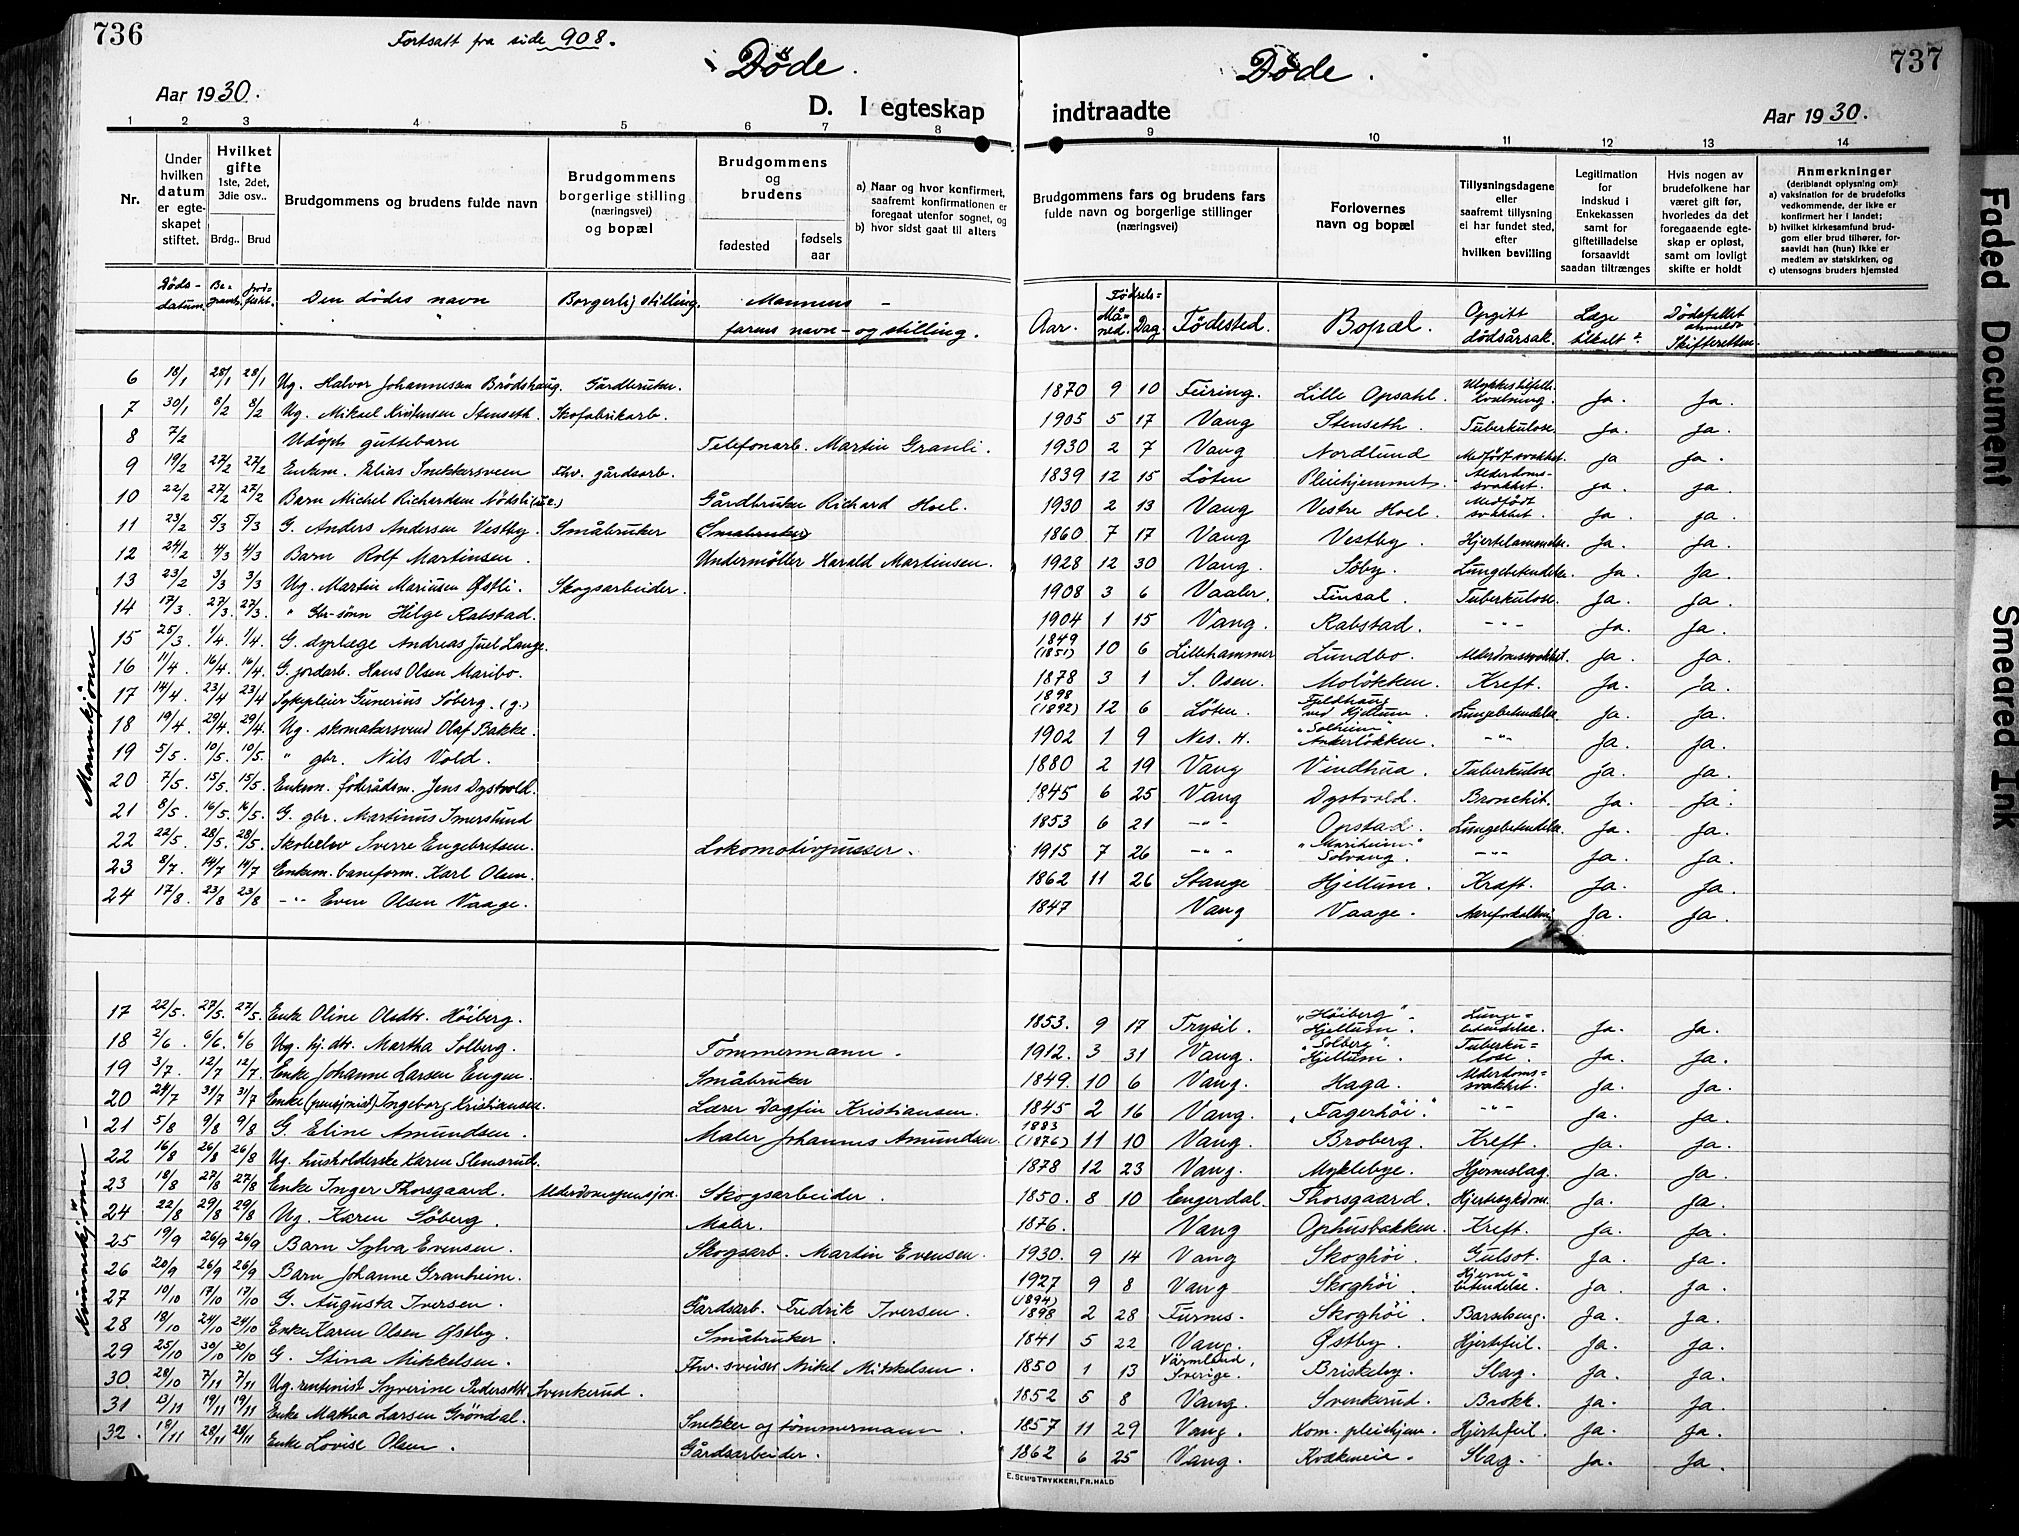 736
Fortsatt fra side 908.
Døde.
Aar 1930.
D. I egteskap
Døde.
737
indtraadte
Aar 1930.
1 2 3 4 5 6 7 8 9 10 11 12 13 14
Nr.
Under hvilken datum er egteskapet stiftet.
Hvilket gifte 1ste, 2det, 3die osv..
Brdg.. Brud
Brudgommens og brudens fulde navn
Brudgommens borgerlige stilling (næringsvei) og bopæl
Brudgommens og brudens
fødested
fødsels aar
a) Naar og hvor konfirmert, saafremt konfirmationen er foregaat utenfor sognet, og
b) hvor sidst gaat til alters
Brudgommens fars og brudens fars fulde navn og borgerlige stillinger (næringsvei)
Forlovernes navn og bopæl
Tillysningsdagene eller saafremt tillysning ei har fundet sted, efter hvilken bevilling
Legitimation for indskud i Enkekassen samt for giftetilladelse forsaavidt saadan tiltrænges
Hvis nogen av brudefolkene har været gift før, hvorledes da det foregaaende egteskap er opløst, samt om lovligt skifte er holdt
Anmerkninger (deriblandt oplysning om):
a) vaksination for de brudefolks vedkommende, der ikke er konfirmert her i landet;
b) hvilket kirkesamfund brudgom eller brud tilhører, forsaavidt han (hun) ikke er medlem av statskirken, og
c) utensogns bruders hjemsted
Døds-datum. Be-gravels. Jord-festet. Den dødes navn Borgerlig stilling. Mannens - farens navn - og stilling.
Aar. Fødsels- Måned. Dag. Fødested. Bopæl. Opgitt dødsårsak. Læge tilkalt? Dødsfallet anmeldt Skifteretten.
Mannkjønn
6 18/1 28/1 28/1 Ug. Halvor Johannessen Brødshaug. Gårdbruker. 1870 9 10 Feiring. Lille Opsahl. Ulykkestilfelle. Kvelning. Ja. Ja.
7 30/1 8/2 8/2 Ug. Mikael Kristensen Stenseth. Skofabrikarb. 1905 5 17 Vang Stenseth. Tuberkulose. Ja. Ja.
8 7/2 Udøpt guttebarn Telefonarb. Martin Granli. 1930 2 7 Vang Nordlund Medfødt svakhet. Ja Ja.
9 19/2 27/2 27/2 Enkem. Elias Snekkersveen Fhv. gårdsarb. 1839 12 15 Løten Pleiehjemmet. Alderdoms-svakhet. Ja. Ja.
10 22/2 27/2 27/2 Barn Michel Richardsen Nødsli (u.e.) Gårdbruker Richard Hoel. 1930 2 13 Vang Vestre Hoel. Medfødt svakhet. Ja. Ja.
11 23/2 5/3 5/3 G. Anders Andersen Vestby. Småbruker (Småbruker) 1860 7 17 Vang Vestby. Hjertelammelse. Ja. Ja.
12 24/2 4/3 4/3 Barn Rolf Martinsen. Undermøller Harald Martinsen. 1928 12 30 Vang. Søby. Lungebetendelse. Ja. Ja.
13 23/2 3/3 3/3 Ug. Martin Mariusen Østli. Skogsarbeider. 1908 3 6 Vaaler. Finsal. Tuberkulose. Ja. Ja.
14 17/3. 27/3 27/3. " Gbr-sønn Helge Rabstad. 1904 1 15 Vang. Rabstad. -"- Ja. Ja.
15 25/3 1/4. 1/4. G. dyrlæge Andreas Juel Lange. 1849 (1851) 10 6 Lillehammer Lundbo. Alderdomssvakhet. Ja. Ja.
16 11/4 16/4 16/4. G. jordarb. Hans Olsen Maribo. 1878 3 1 S. Osen. Moløkken. Kreft. Ja. Ja.
17 14/4. 23/4 23/4 Sykepleier Gunerius Søberg. (g.) 1898 (1892) 12 6 Løten. Fjeldhaug ved Hjellum. Lungebetendelse Ja. Ja.
18 19/4 29/4. 29/4. Ug. skomakersvend Olaf Bakke. 1902 1 9 Nes. H. "Solheim" Ankerløkken. -"- Ja. Ja.
19 5/5. 10/5. 10/5. " gbr. Nils Vold. 1880 2 19 Vang Vindhua. Tuberkulose Ja. Ja.
20 7/5. 15/5 15/5. Enkem. føderådsm. Jens Dystvold. 1845 6 25 Vang Dystvold. Bronchit. Ja. Ja
21 8/5. 16/5. 16/5. G. gbr. Martinus Imerslund 1853 6 21 -"- Opstad. Lungebetendelse. Ja. Ja.
22 22/5. 28/5. 28/5. Skoleelev Sverre Engebretsen. Lokomotivpusser. 1915 7 26 -"- "Mariheim" Solvang. -"- Ja. Ja.
23 8/7. 14/7 14/7 Enkem. baneform. Karl Olsen. 1862 11 26 Stange Hjellum. Kræft. Ja. Ja.
24 17/8. 23/8 23/8 -"- Even Olsen Vaage. 1847 Vang Vaage. Ja. Ja.
Kvinnekjønn
17 22/5. 27/5. 27/5. Enke Oline Olsdtr. Høiberg. 1853. 9 17 Trysil. "Høiberg" Hjellum. Lunge-betendelse. Ja. Ja.
18 2/6. 6/6. 6/6 Ug. hj. dtr. Martha Solberg. Tømmermann. 1912. 3 31 Vang. "Solberg". Hjellum. Tuberku-lose. Ja. Ja.
19 3/7. 12/7 12/7. Enke Johanne Larsen Engen. Småbruker 1849. 10 6 Vang. Haga. Alderdoms-svakhet. Ja. Ja.
20 24/7 31/7 31/7 Enke (pensjonist) Ingeborg Kristiansen. Lærer Dagfin Kristiansen. 1845 2 16 Vang. "Fagerhøi." -"- Ja. Ja.
21 5/8 9/8 9/8 G. Eline Amundsen. Maler Johannes Amundsen. 1883 (1876) 11 10 Vang. Broberg. Kreft. Ja. Ja.
22 16/8 26/8 26/8 Ug. husholderske Karen Slemsrud. 1878 12 23 Vang. Myklebye. Hjerneslag. Ja. Ja.
23 18/8 27/8 27/8 Enke Inger Thorsgaard. Alderdomspensjon. Skogsarbeider. 1850. 8 10 Engerdal. Thorsgaard. Hjertesykdom. Ja. Ja.
24 22/8 29/8 29/8 Ug. Karen Søberg. Maler. 1876. Vang Ophusbakken. Kreft. Ja. Ja.
25 19/9 26/9 26/9 Barn Sylva Evensen. Skogsarb. Martin Evensen. 1930. 9 14 Vang Skoghøi Gulsot. Ja. Ja.
26 20/9 26/9 26/9 Barn Johanne Granheim. 1927 9 8 Vang Skoghøi Hjerne-betendelse. Ja. Ja.
27 10/10 17/10 17/10 G. Augusta Iversen. Gårdsarb. Fredrik Iversen. (1894) 1898 2 28 Furnes. Skoghøi Barselseng. Ja. Ja.
28 18/10 24/10 24/10 Enke Karen Olsen Østby. Småbruker. 1841 5 22 Vang. Østby. Hjertefeil. Ja. Ja.
29 25/10 30/10 30/10 G. Stina Mikkelsen. Fhv. sveiser Mikel Mikkelsen. 1850 1 13 Värmland, Sverige. Briskeby. Slag. Ja. Ja.
30 28/10 7/11 7/11 Ug. rentenist Syverine Pedersdtr Svenkerud. 1852 5 8 Vang. Svenkerud. Brokk. Ja. Ja.
31 13/11 19/11 19/11 Enke Mathea Larsen Grøndal. Snekker og tømmermann. 1857 11 29 Vang. Kom. pleiehjem. Hjertefeil. Ja. Ja.
32. 19/11 28/11 28/11 Enke Lovise Olsen. Gårdsarbeider. 1862 6 25 Vang. Kvækmeie. Slag. Ja. Ja.
E. SEM'S TRYKKERI, FR.HALD
Faded Document
Smeared Ink